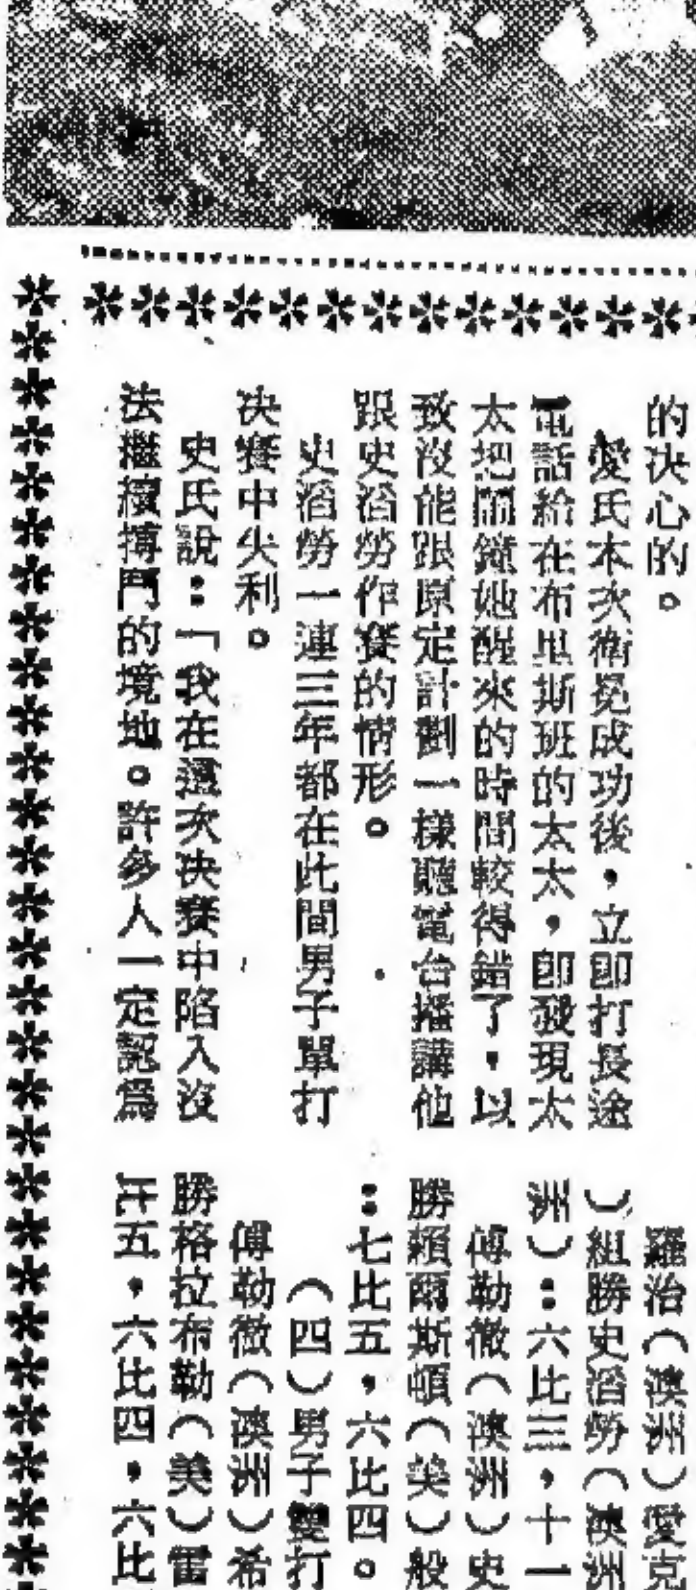 的決心的。
愛氏本次衛冕成功後，立即打長途
電話給在布里斯班的太太，即發現太
太把鬧鐘她醒來的時間較得錯了，以
致沒能跟原定計劃一樣聽電台播講他
跟史滔勞作賽的情形。
史滔勞一連三年都在此間男子單打
決賽中失利。
史氏說：「我在這次決賽中陷入沒
法繼續搏鬥的境地。許多人一定認爲
羅治（澳洲）愛克
）組勝史滔勞（澳洲
洲）：六比三，十一
傅勒徹（澳洲）史
勝賴爾斯頓（美）般
：七比五，六比四。
（四）男子雙打
傅勒徹（澳洲）希
勝格拉布勒（美）雷
五，六比四，六比